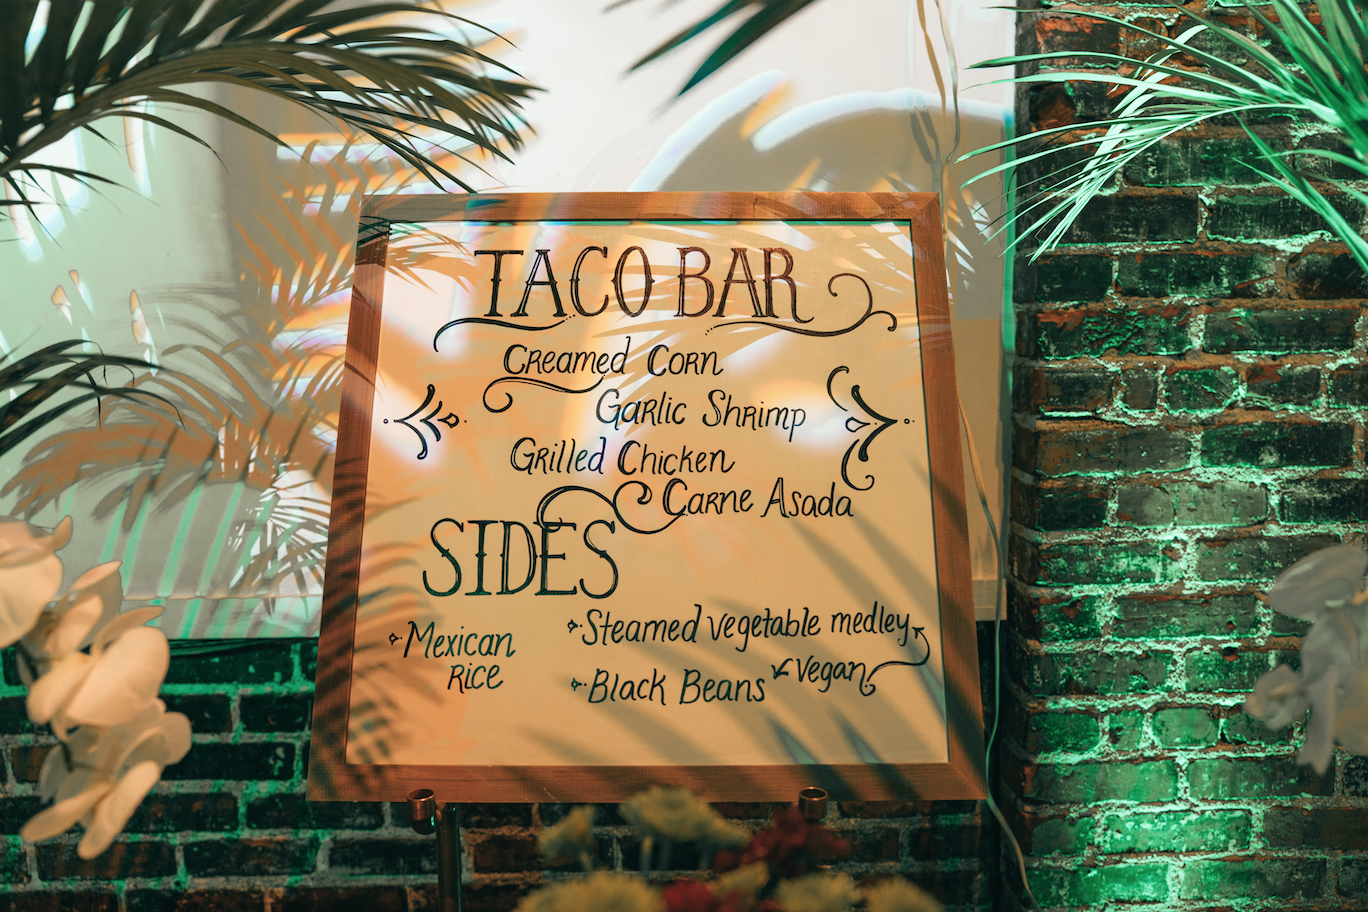 TACO BAR
Creamed Corn
Garlic Shrimp
Grilled Chicken
Carne Asada
SIDES
Mexican
Rice
Steamed vegetable medley
Vegan
Black Beans